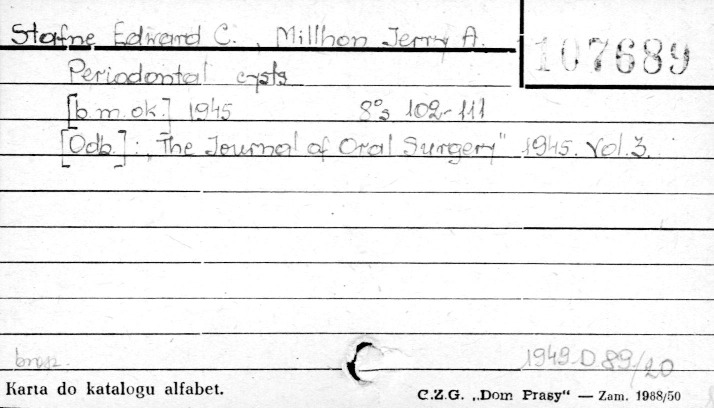 Stafne Edward C., Millhon Jerry A.
107689
Periodontal cysts
[b.m.ok.] 1945 8°s 102-111
[Odb.]: „The Journal of Oral Surgery" 1945. Vol.3.
brosz.
1949 D 89/20
Karta do katalogu alfabet.
C.Z.G. „Dom Prasy“ — Zam. 1988/50